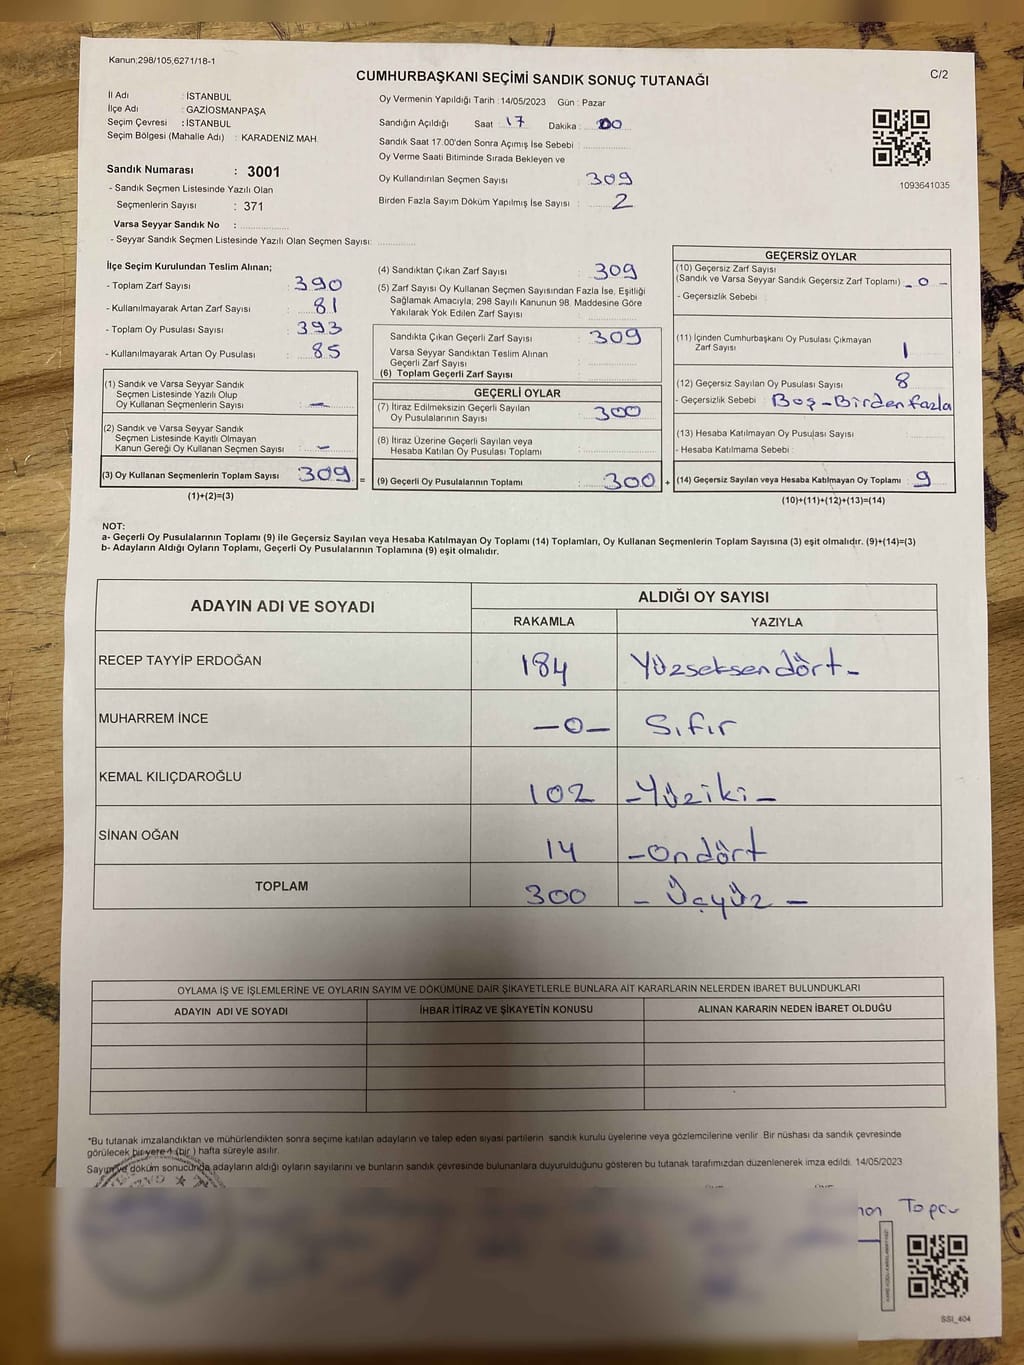 Kanun;298/105,6271/18-1
CUMHURBAŞKANI SEÇİMİ SANDIK SONUÇ TUTANAĞI
C/2
İl Adı : İSTANBUL
İlçe Adı : GAZİOSMANPAŞA
Seçim Çevresi : İSTANBUL
Seçim Bölgesi (Mahalle Adı) : KARADENİZ MAH.
Sandık Numarası : 3001
- Sandık Seçmen Listesinde Yazılı Olan
Seçmenlerin Sayısı : 371
Varsa Seyyar Sandık No :
- Seyyar Sandık Seçmen Listesinde Yazılı Olan Seçmen Sayısı:
Oy Vermenin Yapıldığı Tarih : 14/05/2023 Gün : Pazar
Sandığın Açıldığı Saat : 17 Dakika : 00
Sandık Saat 17.00'den Sonra Açımış İse Sebebi :
Oy Verme Saati Bitiminde Sırada Bekleyen ve
Oy Kullandırılan Seçmen Sayısı : 309
Birden Fazla Sayım Döküm Yapılmış İse Sayısı : 2
1093641035
İlçe Seçim Kurulundan Teslim Alınan;
- Toplam Zarf Sayısı : 390
- Kullanılmayarak Artan Zarf Sayısı : 81
- Toplam Oy Pusulası Sayısı : 393
- Kullanılmayarak Artan Oy Pusulası : 85
(1) Sandık ve Varsa Seyyar Sandık
Seçmen Listesinde Yazılı Olup
Oy Kullanan Seçmenlerin Sayısı : —
(2) Sandık ve Varsa Seyyar Sandık
Seçmen Listesinde Kayıtlı Olmayan
Kanun Gereği Oy Kullanan Seçmen Sayısı : —
(3) Oy Kullanan Seçmenlerin Toplam Sayısı 309 =
(1)+(2)=(3)
(4) Sandıktan Çıkan Zarf Sayısı : 309
(5) Zarf Sayısı Oy Kullanan Seçmen Sayısından Fazla İse, Eşitliği
Sağlamak Amacıyla; 298 Sayılı Kanunun 98. Maddesine Göre
Yakılarak Yok Edilen Zarf Sayısı :
Sandıkta Çıkan Geçerli Zarf Sayısı : 309
Varsa Seyyar Sandıktan Teslim Alınan
Geçerli Zarf Sayısı :
(6) Toplam Geçerli Zarf Sayısı :
GEÇERLİ OYLAR
(7) İtiraz Edilmeksizin Geçerli Sayılan
Oy Pusulalarının Sayısı : 300
(8) İtiraz Üzerine Geçerli Sayılan veya
Hesaba Katılan Oy Pusulası Toplamı :
(9) Geçerli Oy Pusulalarının Toplamı : 300 +
GEÇERSİZ OYLAR
(10) Geçersiz Zarf Sayısı
(Sandık ve Varsa Seyyar Sandık Geçersiz Zarf Toplamı) - 0 -
- Geçersizlik Sebebi :
(11) İçinden Cumhurbaşkanı Oy Pusulası Çıkmayan
Zarf Sayısı : 1
(12) Geçersiz Sayılan Oy Pusulası Sayısı : 8
- Geçersizlik Sebebi : Boş-Birden fazla
(13) Hesaba Katılmayan Oy Pusulası Sayısı :
- Hesaba Katılmama Sebebi :
(14) Geçersiz Sayılan veya Hesaba Katılmayan Oy Toplamı : 9
(10)+(11)+(12)+(13)=(14)
NOT:
a- Geçerli Oy Pusulalarının Toplamı (9) ile Geçersiz Sayılan veya Hesaba Katılmayan Oy Toplamı (14) Toplamları, Oy Kullanan Seçmenlerin Toplam Sayısına (3) eşit olmalıdır. (9)+(14)=(3)
b- Adayların Aldığı Oyların Toplamı, Geçerli Oy Pusulalarının Toplamına (9) eşit olmalıdır.
ADAYIN ADI VE SOYADI
ALDIĞI OY SAYISI
RAKAMLA YAZIYLA
RECEP TAYYİP ERDOĞAN 184 Yüzseksendört-
MUHARREM İNCE -0- Sıfır
KEMAL KILIÇDAROĞLU 102 -Yüziki-
SİNAN OĞAN 14 -Ondört
TOPLAM 300 - Üçyüz -
OYLAMA İŞ VE İŞLEMLERİNE VE OYLARIN SAYIM VE DÖKÜMÜNE DAİR ŞİKAYETLERLE BUNLARA AİT KARARLARIN NELERDEN İBARET BULUNDUKLARI
ADAYIN ADI VE SOYADI İHBAR İTİRAZ VE ŞİKAYETİN KONUSU ALINAN KARARIN NEDEN İBARET OLDUĞU
*Bu tutanak imzalandıktan ve mühürlendikten sonra seçime katılan adayların ve talep eden siyasi partilerin sandık kurulu üyelerine veya gözlemcilerine verilir. Bir nüshası da sandık çevresinde
görülecek bir yere 1 (bir ) hafta süreyle asılır.
Sayım ve döküm sonucunda adayların aldığı oyların sayılarını ve bunların sandık çevresinde bulunanlara duyurulduğunu gösteren bu tutanak tarafımızdan düzenlenerek imza edildi. 14/05/2023
SSI_404